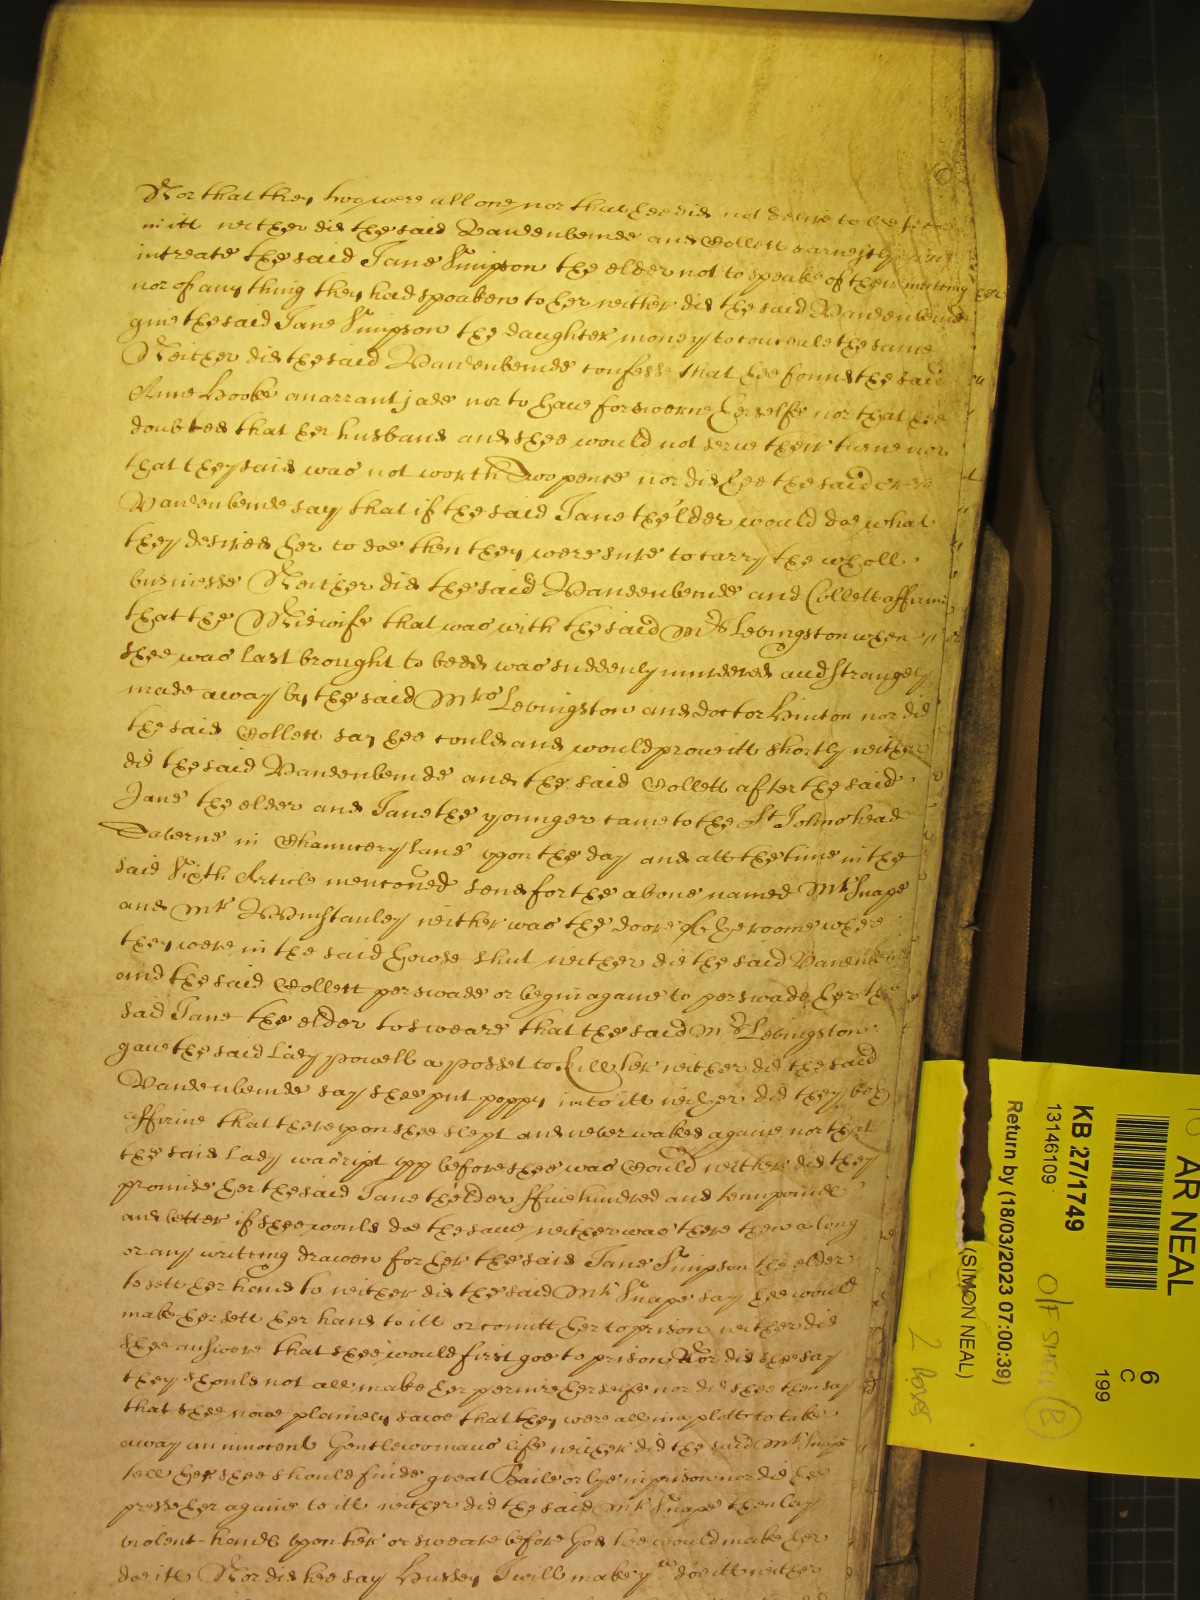 Nor that they two were all one nor that hee did not desire to bee seene
in itt neither did the said Vandenbemde and Collett earnestly
intreate the said Jane Simpson the elder not to speake of their meeting her
nor of any thing they had spoaken to her neither did the said Vandenbemde
give the said Jane Simpson the daughter money to conceale the same
Neither did the said Vandenbemde confesse that hee found the said
Anne Hooke an arrant jade nor to have forsworne herselfe nor that hee
doubted that her husband and shee would not serve their turne nor
that they said was not worth Twopence nor did hee the said
Vandenbemde say that if the said Jane thelder would doe what
they desired her to doe then they were sure to carry the wholl
businesse Neither did the said Vandenbemde and Collett affirme
that the Midwife that was with the said Mrs Levingston when
shee was last brought to bedd was suddenly murdered and strangely
made away by the said Mrs Levingston and doctor Hinton nor did
the said Collett say hee could and would prove itt shortly neither
did the said Vandenbemde and the said Collett after the said
Jane the elder and Jane the younger came to the St Johns head
Taverne in Chauncery lane upon the day and att the time in the
said Sixth Article menconed send for the above named Mr Snape
and Mr Winstanley neither was the doore of the roome where
they were in the said howse shut neither did the said Vandenbemde
and the said Collett perswade or begin againe to perswade her the
said Jane the elder to sweare that the said Mrs Levingston
gave the said Lady Powell a posset to kill her neither did the said
Vandenbemde say shee put poppy into itt neither did they both
affirme that thereupon shee slept and never waked againe nor that
the said Lady was ript upp before shee was Could neither did they
promise her the said Jane thelder ffive hundred and tenn pound
and better if shee would doe the same neither was there then a long
or any writting drawen for her the said Jane Simpson the elder
to sett her hand to neither did the said Mr Snape say hee would
make her sett her hand to itt or comitt her to prison neither did
shee answere that shee would first goe to prison Nor did shee say
they should not all make her perjure herselfe nor did shee then say
that shee now plainely sawe that they were all in a plott to take
away an innocent Gentlewomans life neither did the said Mr Snape
tell her shee should finde great Baile or lye in prison nor did hee
presse her againe to itt neither did the said Mr Snape then lay
violent hands upon her or sweare before God hee would make her
doe itt Nor did hee say Hussey I will make you doe itt neither
AR NEAL
6
C
199
KB 27/1749
13146109
Return by (18/03/2023 07:00:39)
(SIMON NEAL)
O/F
B
2 boxes